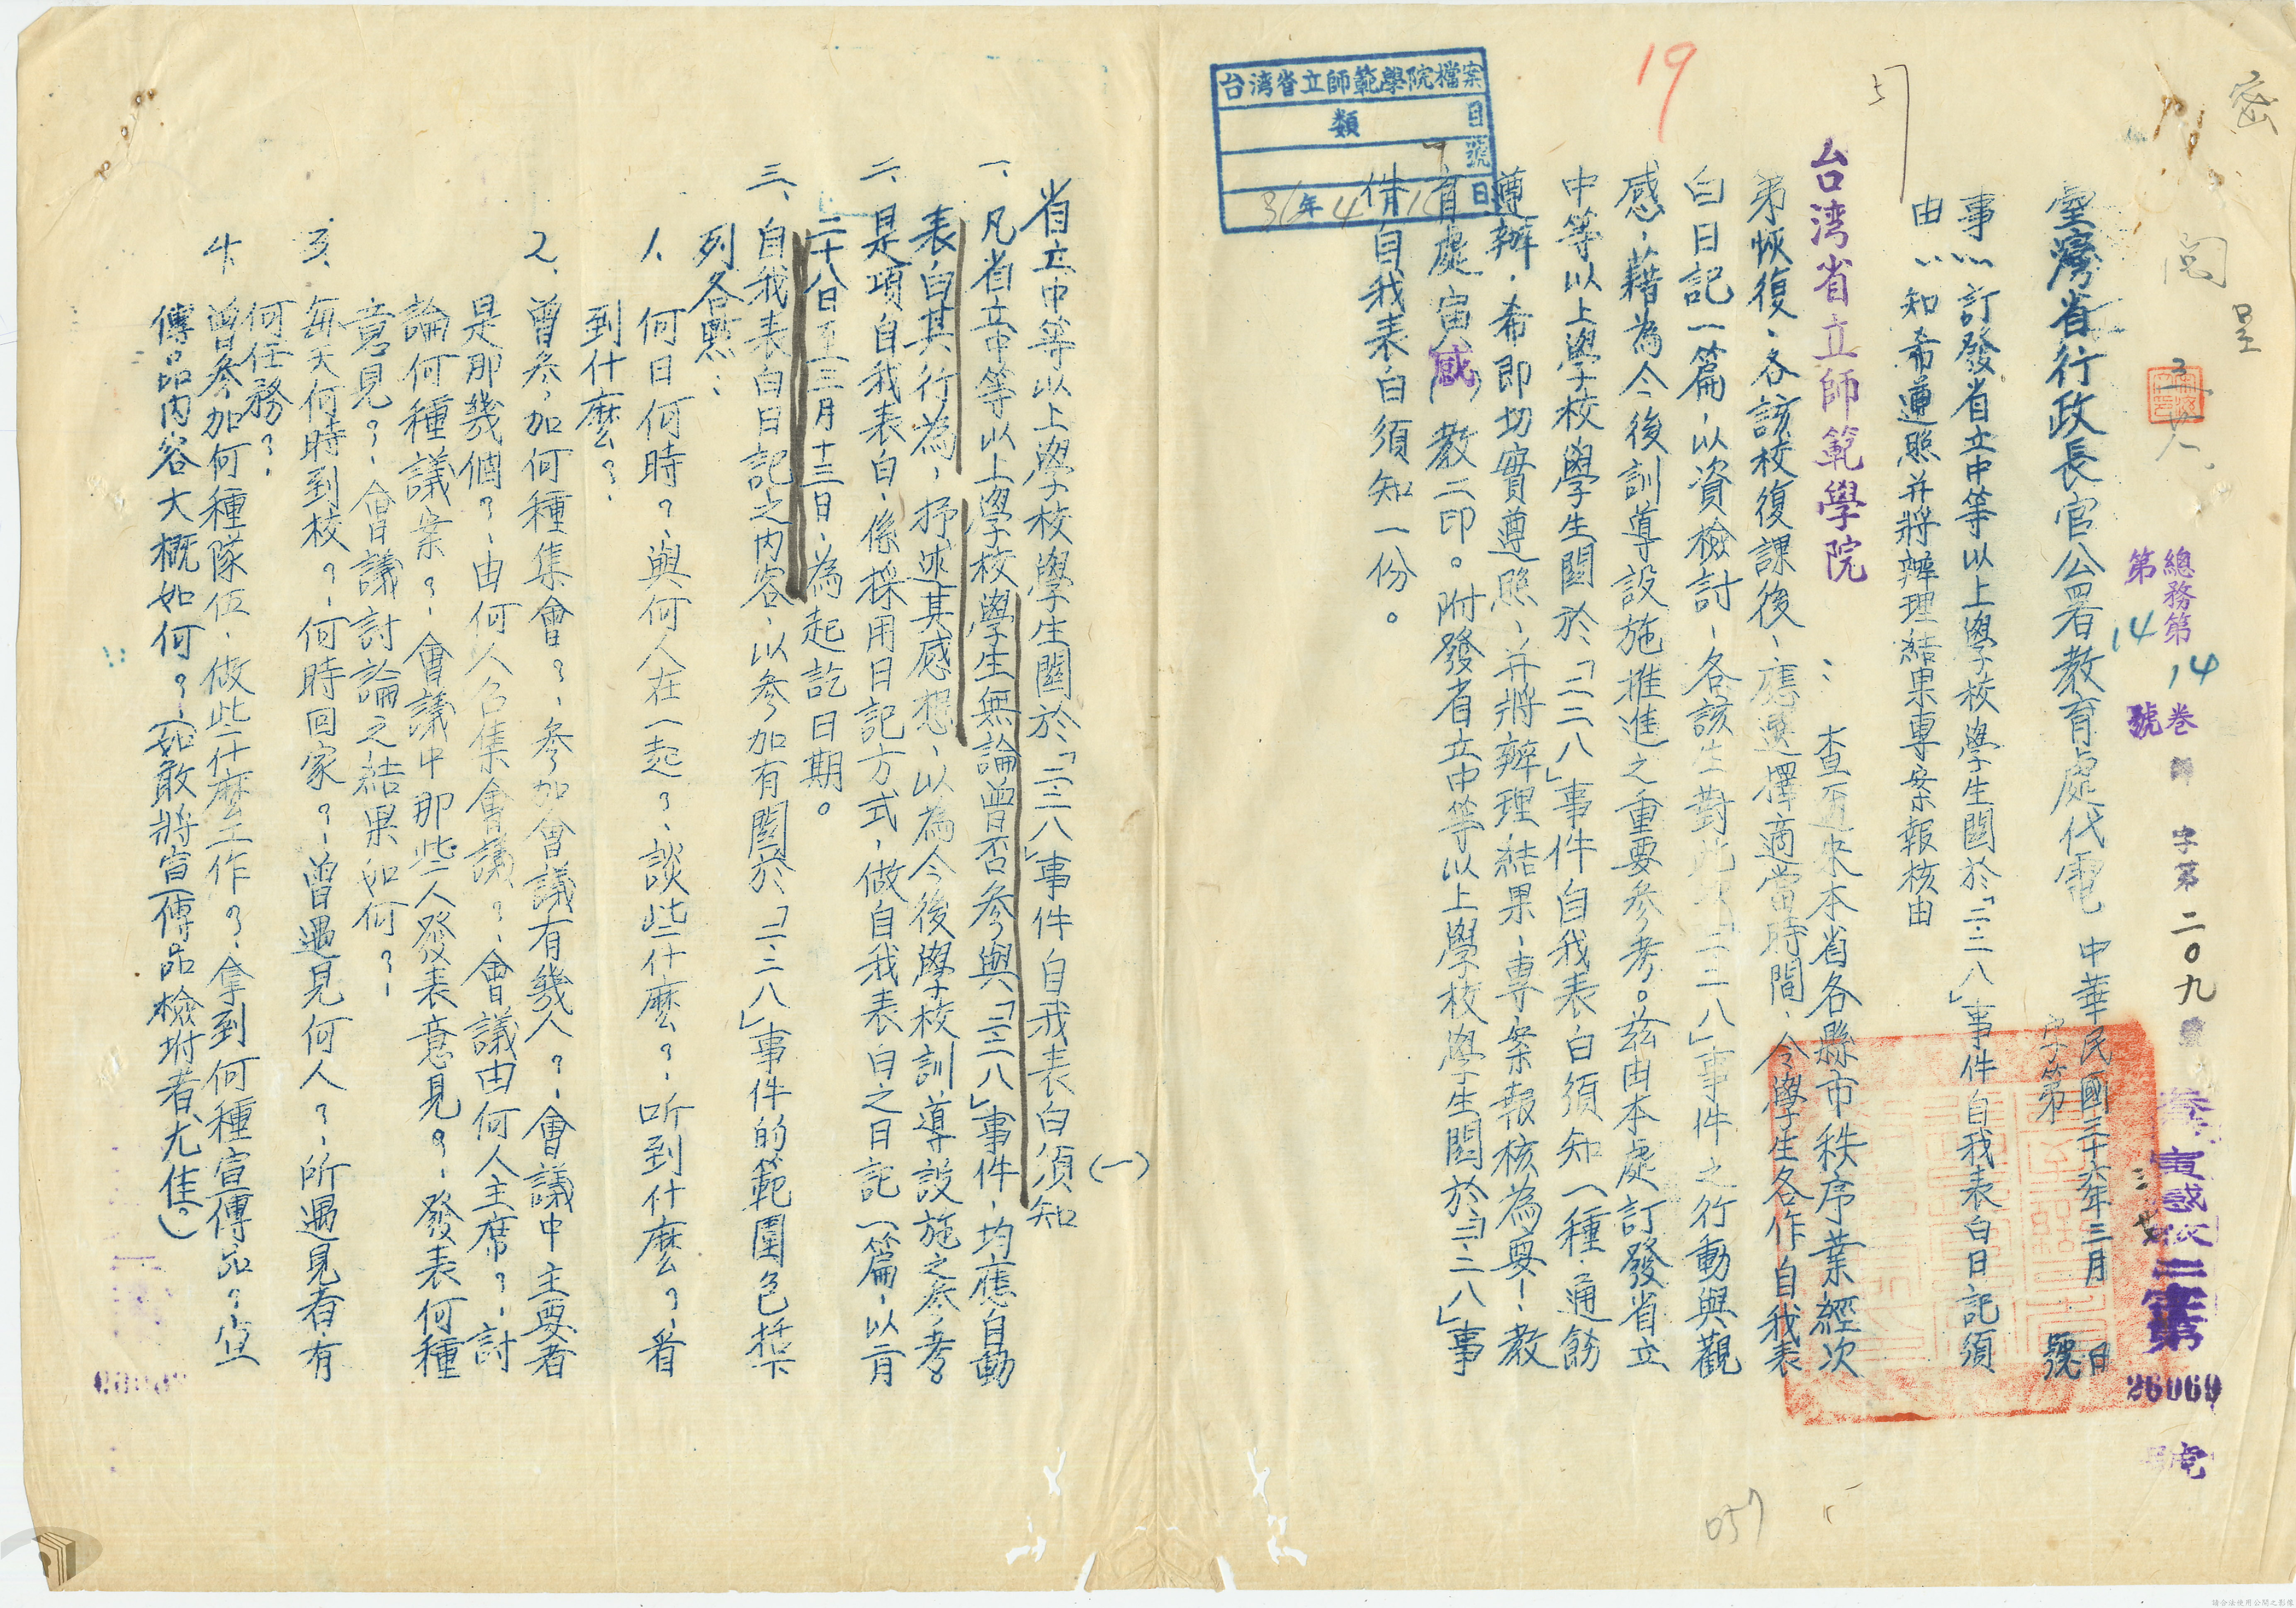 密
閱
呈
總務第14卷
第14號
字第二〇九號
26069
臺灣省行政長官公署教育處代電 中華民國三十六年三月 日
字第 號
事由:訂發省立中等以上學校學生關於「二二八」事件自我表白日記須
知希遵照并將辦理結果專案報核由
台湾省立師範學院
:查邇來本省各縣市秩序業經次
第恢復、各該校復課後、應選擇適當時間、令學生各作自我表
白日記一篇、以資檢討、各該生對此次「二二八」事件之行動與觀
感、藉為今後訓導設施推進之重要參考。茲由本處訂發省立
中等以上學校學生關於「二二八」事件自我表白須知一種、通飭
遵辦、希即切實遵照、并將辦理結果、專案報核為要!教
育處寅感教二印。附發省立中等以上學校學生關於「二二八」事
件自我表白須知一份。
19
57
台湾省立師範學院檔案
類
目
號
36年4月10日
057
(一)
省立中等以上學校學生關於「二二八」事件自我表白須知
一、凡省立中等以上學校學生無論曾否參與「二二八」事件、均應自動
表白其行為、抒述其感想、以為今後學校訓導設施之參考。
二、是項自我表白、係採用日記方式、做自我表白之日記一篇、以二月
二十八日至三月十三日、為起訖日期。
三、自我表白日記之內容、以參加有關於「二二八」事件的範圍包括下
列各點:
1、何日何時?、與何人在一起?、談些什麼?、听到什麼?、看
到什麼?、
2、曾參加何種集會?、參加會議有幾人?、會議中主要者
是那幾個?、由何人召集會議?、會議由何人主席?、討
論何種議案?、會議中那些人發表意見?、發表何種
意見?、會議討論之結果如何?、
3、每天何時到校?、何時回家?、曾遇見何人?、所遇見者有
何任務?、
4、曾參加何種隊伍、做些什麼工作?、拿到何種宣傳品?、宣
傳品內容大概如何?(如敢將宣傳品檢坿者尤佳。)